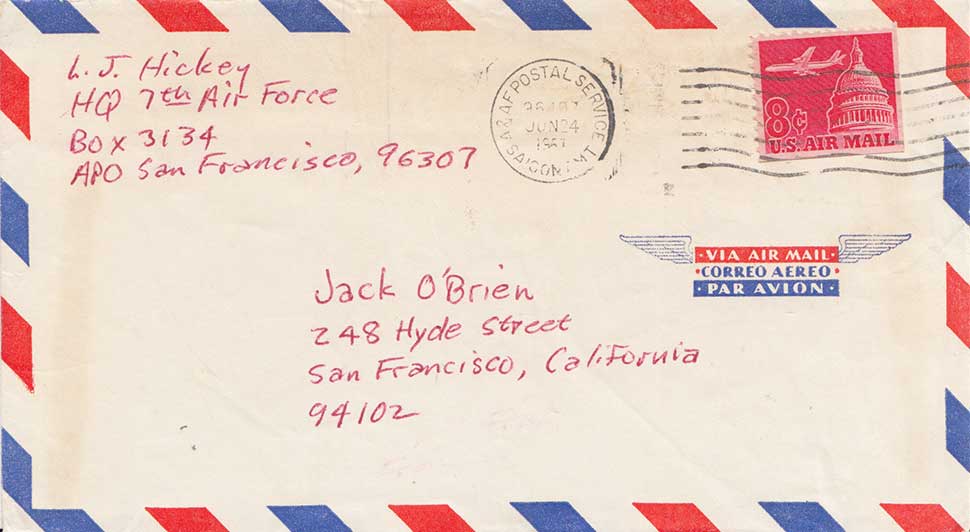 L. J. Hickey
HQ 7th Air Force
Box 3134
APO San Francisco, 96307
A&AF POSTAL SERVICE
96307
JUN 24
1967
SAIGON
8¢
U.S. AIR MAIL
VIA AIR MAIL
CORREO AEREO
PAR AVION
Jack O'Brien
248 Hyde Street
San Francisco, California
94102